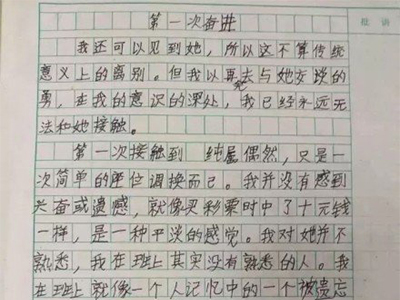 第一次奋进
批语
我还可以见到她，所以这不算传统
意义上的离别。但我以再无去与她交谈的
勇，在我的意识的深处，我已经永远无
法和她接触。
第一次接触到 纯属偶然，只是一
次简单的座位调换而已。我并没有感到
兴奋或遗感，就像买彩票时中了十元钱
一样，是一种平淡的感觉。我对她并不
熟悉，我在班上其实没有熟悉的人。我
在班上就像一个人记忆中的一个被遗忘